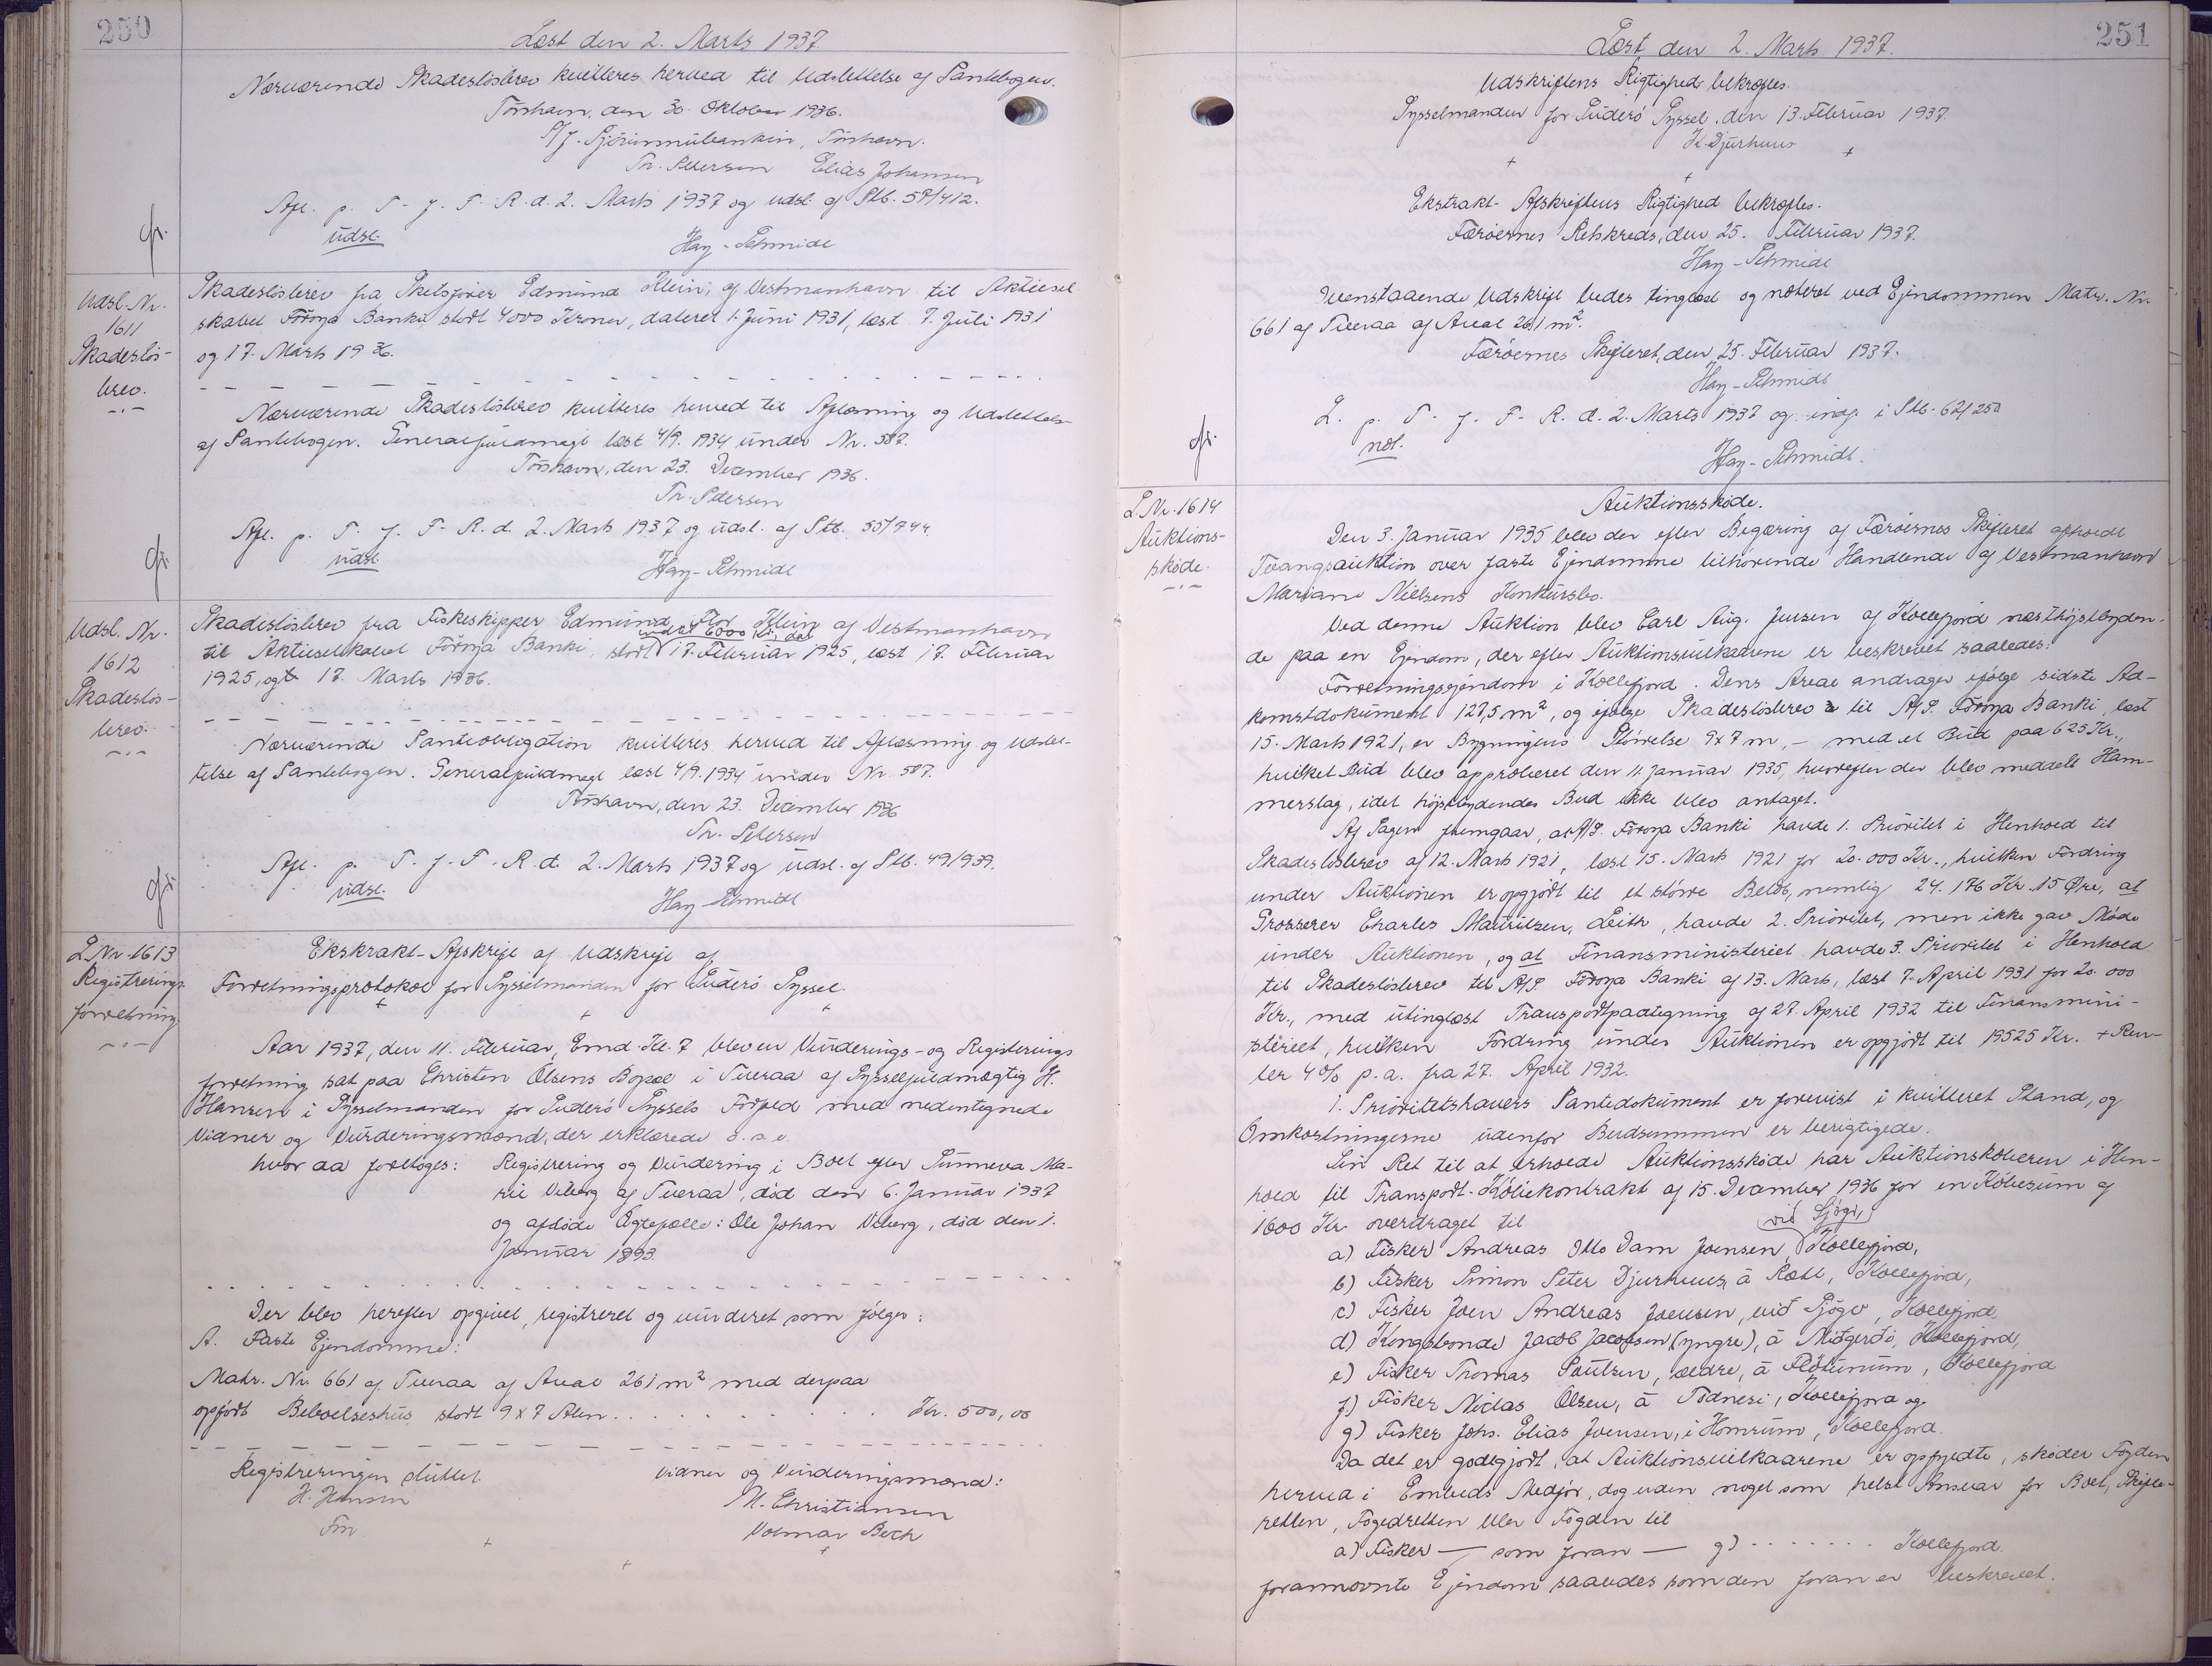 250
Læst den 2. Marts 1937.
Nærværende Skadesløsbrev kvitteres herved til Udslettelse af Pantebogen.
Tórshavn, den 30. Oktober 1936.
P/f. Sjóvinnubankin, Tórshavn.
Th. Petersen Elias Johansen
Afl. p. T. f. F. R. d. 2. Marts 1937 og udsl. af Ptb. 57/412.
udsl.
Hay-Schmidt
Udsl. Nr.
1611
Skadesløs-
brev.
Skadesløsbrev fra Skibsfører Edmund Klein, af Vestmanhavn til Aktiesel
skabet Föroya Banki stort 4000 Kroner, dateret 1. Juni 1931, læst 7. Juli 1931
og 17. Marts 1936.
Nærværende Skadesløsbrev kvitteres herved til Aflæsning og Udslettelse
af Pantebogen. Generalfuldmagt læst 4/9. 1934 under Nr. 587.
Tórshavn, den 23. December 1936.
Th. Petersen
Afl. p. T. f. F. R. d. 2. Marts 1937 og udsl. af Ptb. 55/944.
udsl.
Hay-Schmidt
Udsl. Nr.
1612
Skadesløs-
brev.
Skadesløsbrev fra Fiskeskipper Edmund Flor Klein af Vestmanhavn
til Aktieselskabet Föroya Banki, stort 17. Februar 1925, læst 17. Februar
1925, og 17. Marts 1936.
Nærværende Panteobligation kvitteres herved til Aflæsning og Udslet-
telse af Pantebogen. Generalfuldmagt læst 4/9. 1934 under Nr. 587.
Tórshavn, den 23. December 1936
Th. Petersen
Afl. p. T. f. F. R. d. 2. Marts 1937 og udsl. af Ptb. 49/939.
udsl.
Hay-Schmidt
L. Nr. 1613
Registrerings
forretning
Ekskrakt-Afskrift af Udskrift af
Forretningsprotokol for Sysselmanden for Suderø Syssel.
Aar 1937, den 11. Februar, Emd. Kl. 7 blev en Vurderings- og Registrerings
forretning sat paa Christen Olsens Bopæl i Tveraa af Sysselfuldmægtig H.
Hansen i Sysselmanden for Suderø Syssels Forfald med nedentegnede
Vidner og Vurderingsmænd, der erklærede o.s.v.
hvor da foretoges: Registrering og Vurdering i Boet efter Sunneva Ma-
rie Viberg af Tveraa, død den 6. Januar 1937
og afdøde Ægtefælle: Ole Johan Viberg, død den 1.
Januar 1893.
Der blev herefter opgivet, registreret og vurderet som følger:
A. Faste Ejendomme:
Matr. Nr. 661 af Tveraa af Areal 261 m² med derpaa
opført Beboelseshus stort 9 x 7 Alen . . . . . Kr. 500,00
Registreringen sluttet.
H. Hansen
Fm.
Vidner og Vurderingsmænd:
M. Christiansen
Volmar Bech
251
Læst den 2. Marts 1937.
Udskriftens Rigtighed bekræftes.
Sysselmanden for Suderø Syssel, den 13. Februar 1937.
K. Djurhuus
Ekstrakt-Afskriftens Rigtighed bekræftes.
Færøernes Retskreds, den 25. Februar 1937.
Hay-Schmidt
Ovenstaaende Udskrift bedes tinglæst og noteret ved Ejendommen Matr. Nr.
661 af Tveraa af Areal 261 m².
Færøernes Skifteret, den 25. Februar 1937.
Hay-Schmidt
L. p. T. f. F. R. d. 2. Marts 1937 og indf. i Ptb. 62/250
not.
Hay-Schmidt.
L. Nr. 1614
Auktions-
skøde.
Auktionsskøde.
Den 3. Januar 1935 blev der efter Begæring af Færøernes Skifteret afholdt
Tvangsauktion over faste Ejendomme tilhørende Handlende af Vestmanhavn
Mariane Nielsens Konkursbo.
Ved denne Auktion blev Carl Aug. Jensen af Kollefjord næsthøjstbyden-
de paa en Ejendom, der efter Auktionsvilkaarene er beskrevet saaledes:
Forretningsejendom i Kollefjord. Dens Areal andrager ifølge sidste Ad-
komstdokument 127,5 m², og ifølge Skadesløsbrev til A/S. Föroya Banki, læst
15. Marts 1921, er Bygningens Størrelse 9x7 m, - med et Bud paa 625 Kr.,
hvilket Bud blev approberet den 11. Januar 1935, hvorefter der blev meddelt Ham-
merslag, idet højstbydendes Bud ikke blev antaget.
Af Sagen fremgaar, at A/S. Föroya Banki havde 1. Prioritet i Henhold til
Skadesløsbrev af 12. Marts 1921, læst 15. Marts 1921 for 20.000 Kr., hvilken Fordring
under Auktionen er opgjort til et større Beløb, nemlig 24.176 Kr. 15 Øre, at
Grosserer Charles Mauritzen, Leith, havde 2. Prioritet, men ikke gav Møde
under Auktionen, og at Finansministeriet havde 3. Prioritet i Henhold
til Skadesløsbrev til A/S Föroya Banki af 13. Marts, læst 7. April 1931 for 20.000
Kr., med utinglæst Transportpaategning af 27. April 1932 til Finansmini-
steriet, hvilken Fordring under Auktionen er opgjort til 19525 Kr. + Ren-
ter 4% p.a. fra 27. April 1932.
1. Prioritetshavers Pantedokument er forevist i kvitteret Stand, og
Omkostningerne udenfor Budsummen er berigtigede.
Sin Ret til at erholde Auktionsskøde har Auktionskøberen i Hen-
hold til Transport-Købekontrakt af 15. December 1936 for en Købesum af
1600 Kr. overdraget til
a) Fisker Andreas Otto Dam Joensen, við Sjógv, Kollefjord,
b) Fisker Simon Peter Djurhuus, á Rætt, Kollefjord,
c) Fisker Joen Andreas Joensen, við Sjógv, Kollefjord,
d) Kongsbonde Jacob Jacobsen (yngre), á Miðgerði, Kollefjord,
e) Fisker Thomas Poulsen, ældre, á Fløtunum, Kollefjord
f) Fisker Niclas Olsen, á Toðnesi, Kollefjord og
g) Fisker Johs. Elias Joensen, i Homrum, Kollefjord.
Da det er godtgjort, at Auktionsvilkaarene er opfyldte, skøder Fogden
herved i Embeds Medfør, dog uden noget som helst Ansvar for Boet, Skifte-
retten, Fogedretten eller Fogden til
a) Fisker — som foran — g) . . . . . . . Kollefjord.
forannævnte Ejendom saaledes som den foran er beskrevet.